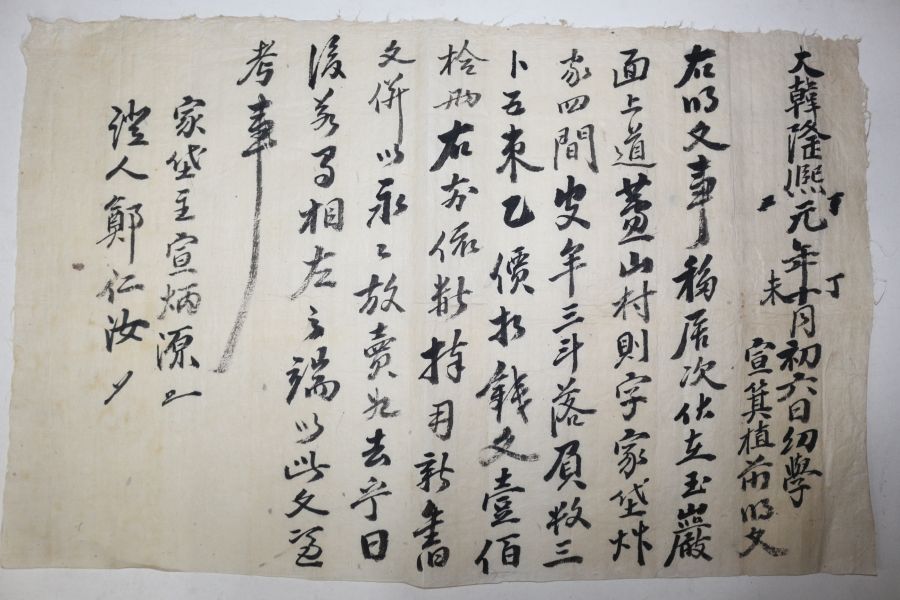 大韓隆熙元年丁未十月初六日幼學
宣箕植前明文
右明文事移居次伏在玉巖
面上道山村則字家垈艸
家四間皮牟三斗落負數三
卜五束乙價折錢文壹佰
拾兩右前依數捧用新舊
文倂以永〻放賣爲去乎日
後若有相左之端以此文憑
考事
家垈主宣炳源
證人鄭仁汝